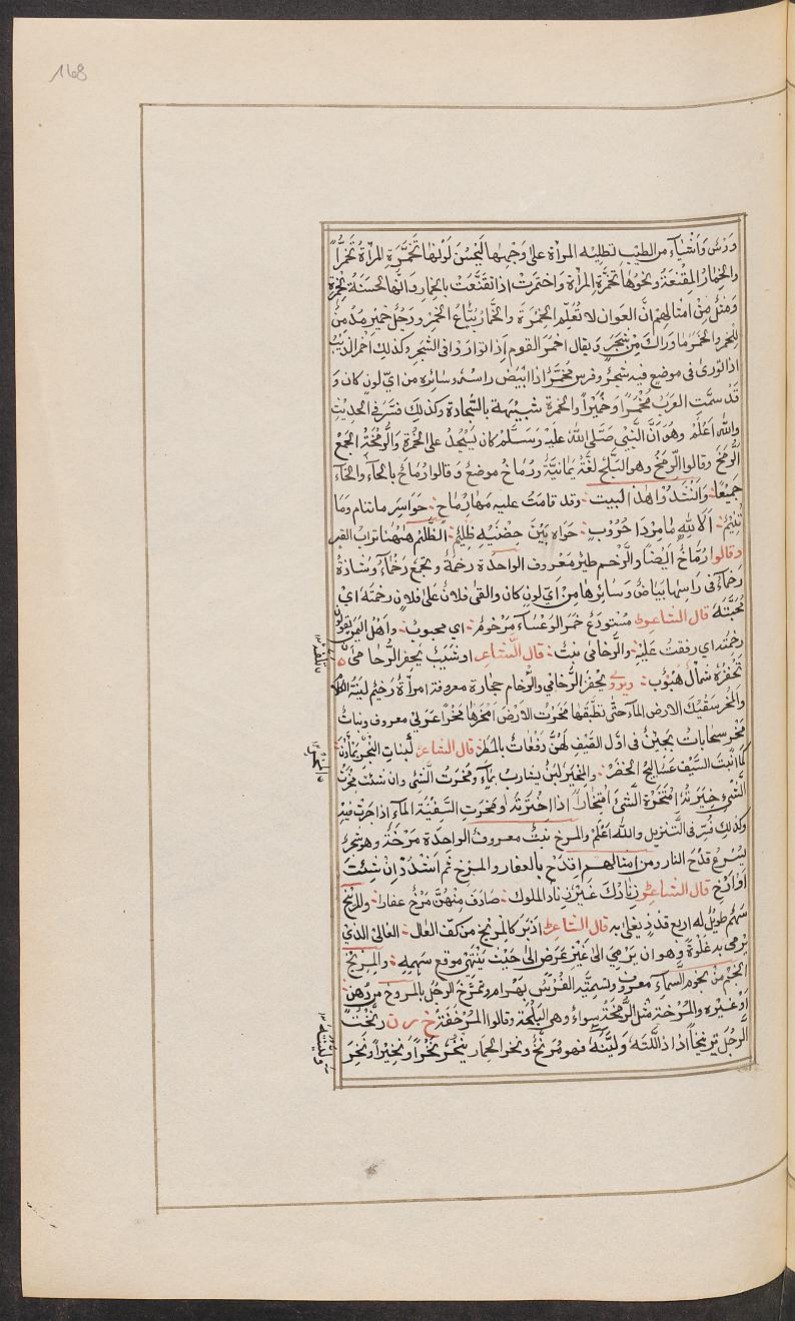 168
ورس وأشياء من الطيب تطليه المرأة على وجهها ليحسن لونها تخمرة المرأة تخمراً
والخمار المقنعة ونحوها تخمرة المرأة واختمرت اذا تقنعت بالخمار وانها لحسنة الخمرة
ومثل من امثالهم ان العوان لا تعلم الخمرة والخمار بياع الخمر ورجل خمير مدمن
للخمر والخمر ما واراك من شجر ويقال اخمر القوم اذا تواروا فى الشجر وكذلك اخمر الذئب
اذا تورى فى موضع فيه شجر وفرس مخمر اذا ابيض راسه وسائره من اى لون كان و
قد سمت العرب مخمراً وخميراً والخمرة شبيهة بالسجادة وكذلك فسر فى الحديث
والله اعلم وهو ان النبى صلى الله عليه وسلم كان يسجد على الخمرة والرمخة الجمع
الرمخ وقالوا الرمخ وهو البلح لغة يمانية ورماخ موضع وقالوا رماح بالحاء والخاء
جميعا وانشدوا هذا البيت وقد قامت عليه مها رماح حواسر ما تنام وما
تنيم الا لله ما مردا حروب حواه بين حضنيه ظليم الظلم ههنا تراب القبر
وقالوا رماخ ايضا والرخم طير معروف الواحدة رخمة وتجمع رخماً وشاة
رخماء فى راسها بياض وسائرها من اى لون كان والقى فلان على فلان رخمته اى
محبته قال الشاعر مستودع خمر الوعساء مرخوم اى محبوب واهل اليمن يقولون
رخمته اى رفقت عليه والرخامى نبت قال الشاعر او شبب يحفر الرخامى
تحفزه شمال هبوب ويروى يحفر الرخامى والرخام حجارة معروفة امرأة رخيم لينة
والمخر سقيك الارض الماء حتى تطبقها مخرت الارض امخرها مخراً عربى معروف وبنات
مخر سحابات يجئن فى اول الصيف لهن دفعات بالمطر قال الشاعر كبنات المخر يمأدن
كما انبت الصيف عساليج الخضر والنخير لبن يشارب بماء ومخرت الشى وان شئت مخرت
الشى خيرته امتخرة الشى امتخاراً اذا اخترته ومخرت السفينة الماء اذا جرت فيه
وكذلك فسر فى التنزيل والله اعلم والمرخ نبت معروف الواحدة مرخة وهو شجر
يسرع قدح النار ومن امثالهم اقدح بالعفار والمرخ ثم اشدد ان شئت
او ارخ قال الشاعر زنادك خير زناد الملوك صادف منهن مرخ عفارا والمريخ
سهم طويل له اربع قذذ يغلى به قال الشاعر ادبر كالمريخ من كف الغال الغالى الذى
يرمى به غلوة وهو ان يرمى الى غير غرض الى حيث ينتهى موقع سهمه والمريخ
النجم من نجوم السماء معرب ولسميته الفرس بهرام وتمرخ الرجل بالمروخ من دهن
او غيره والمرخة مثل الرمخة سواء وهى البلحة وقالوا المرخة خ ر ن رنخت
الرجل ترنيخاً اذا ذللته ولينته فهو مرنخ ونخر الحمار ينخر نخراً ونخيراً ونخر